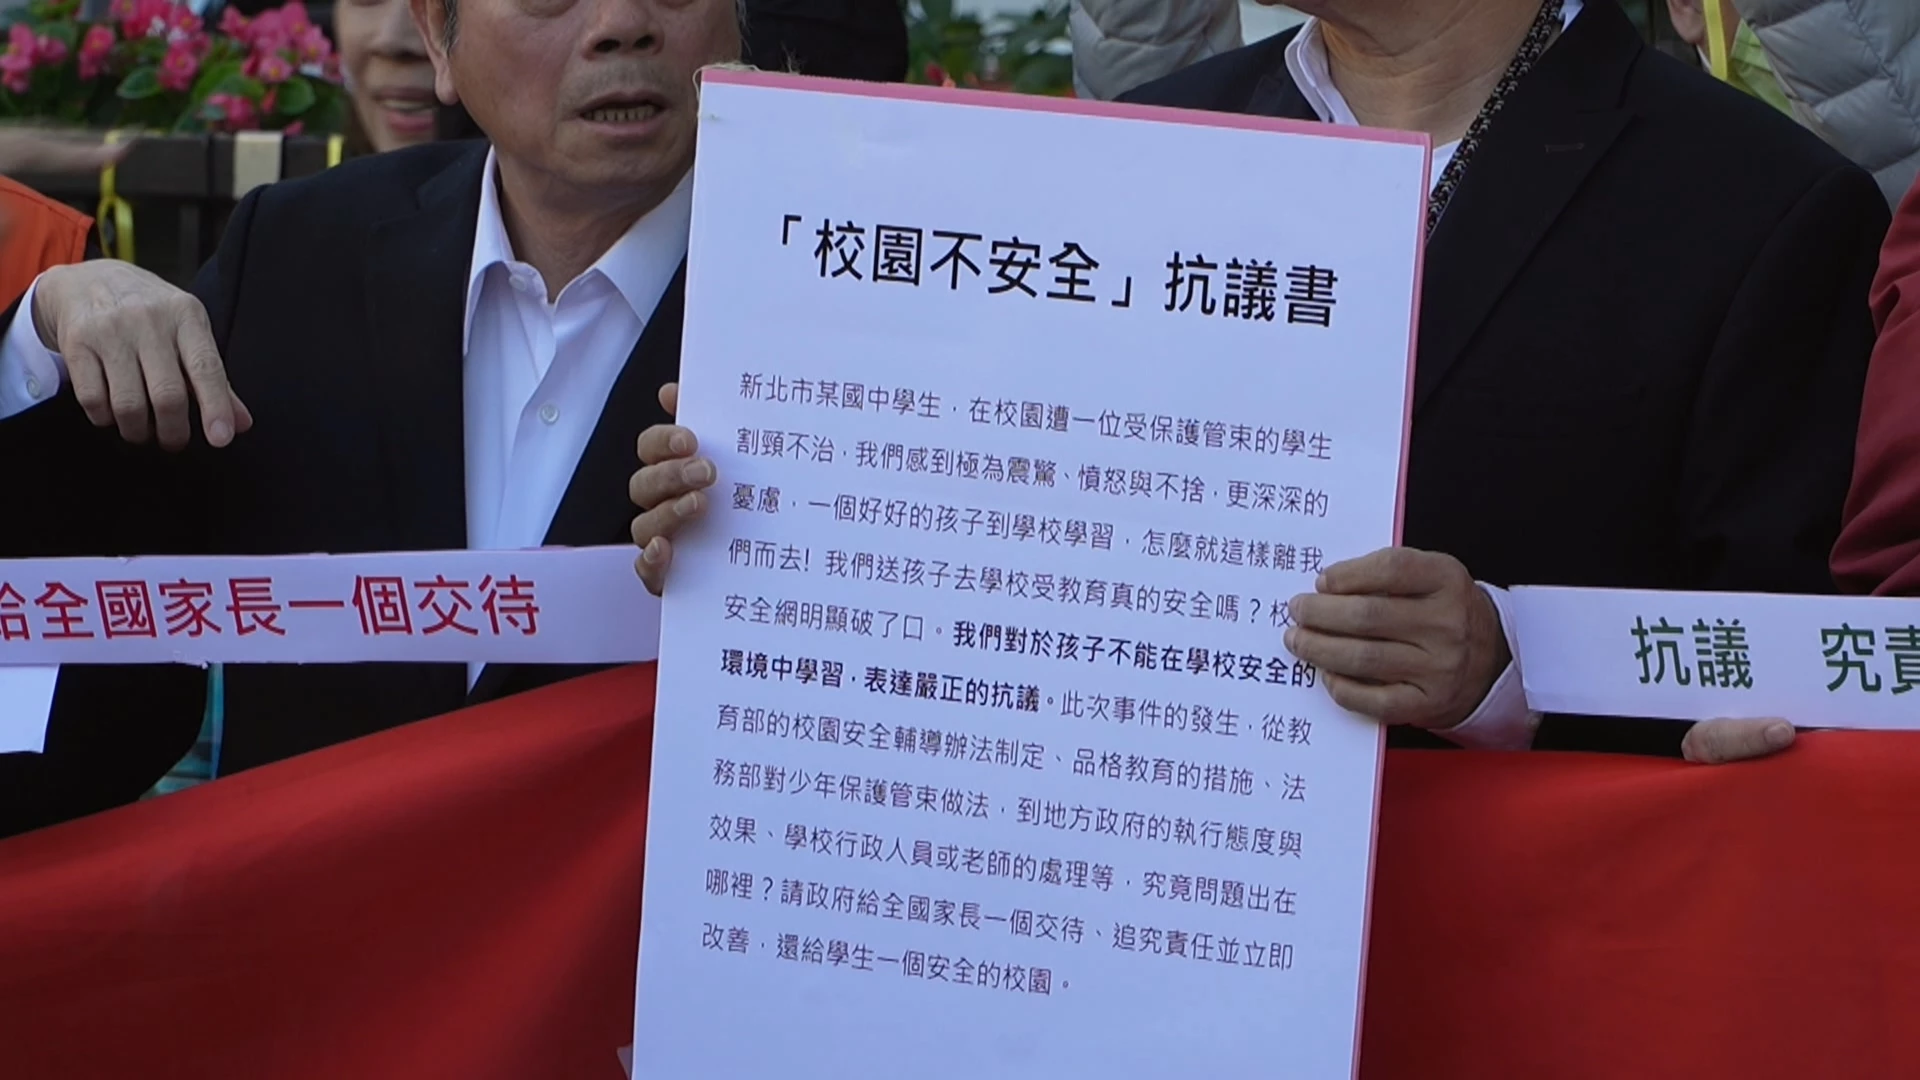 「校園不安全」抗議書
新北市某國中學生，在校園遭一位受保護管束的學生
割頸不治，我們感到極為震驚、憤怒與不捨，更深深的
憂慮，一個好好的孩子到學校學習，怎麼就這樣離我
們而去! 我們送孩子去學校受教育真的安全嗎？校
安全網明顯破了口。我們對於孩子不能在學校安全的
環境中學習，表達嚴正的抗議。此次事件的發生，從教
育部的校園安全輔導辦法制定、品格教育的措施、法
務部對少年保護管束做法，到地方政府的執行態度與
效果、學校行政人員或老師的處理等，究竟問題出在
哪裡？請政府給全國家長一個交待、追究責任並立即
改善，還給學生一個安全的校園。
給全國家長一個交待
抗議 究責